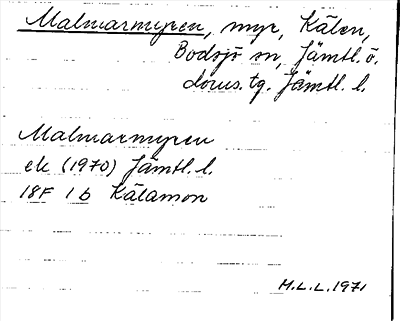 Malmarmyren, myr, Kälen,
Bodsjö sn, Jämtl. ö.
doms. tg. Jämtl. l.
Malmarmyren
ek (1970) Jämtl. l.
18F 1b Kälamon
M.L.L. 1971